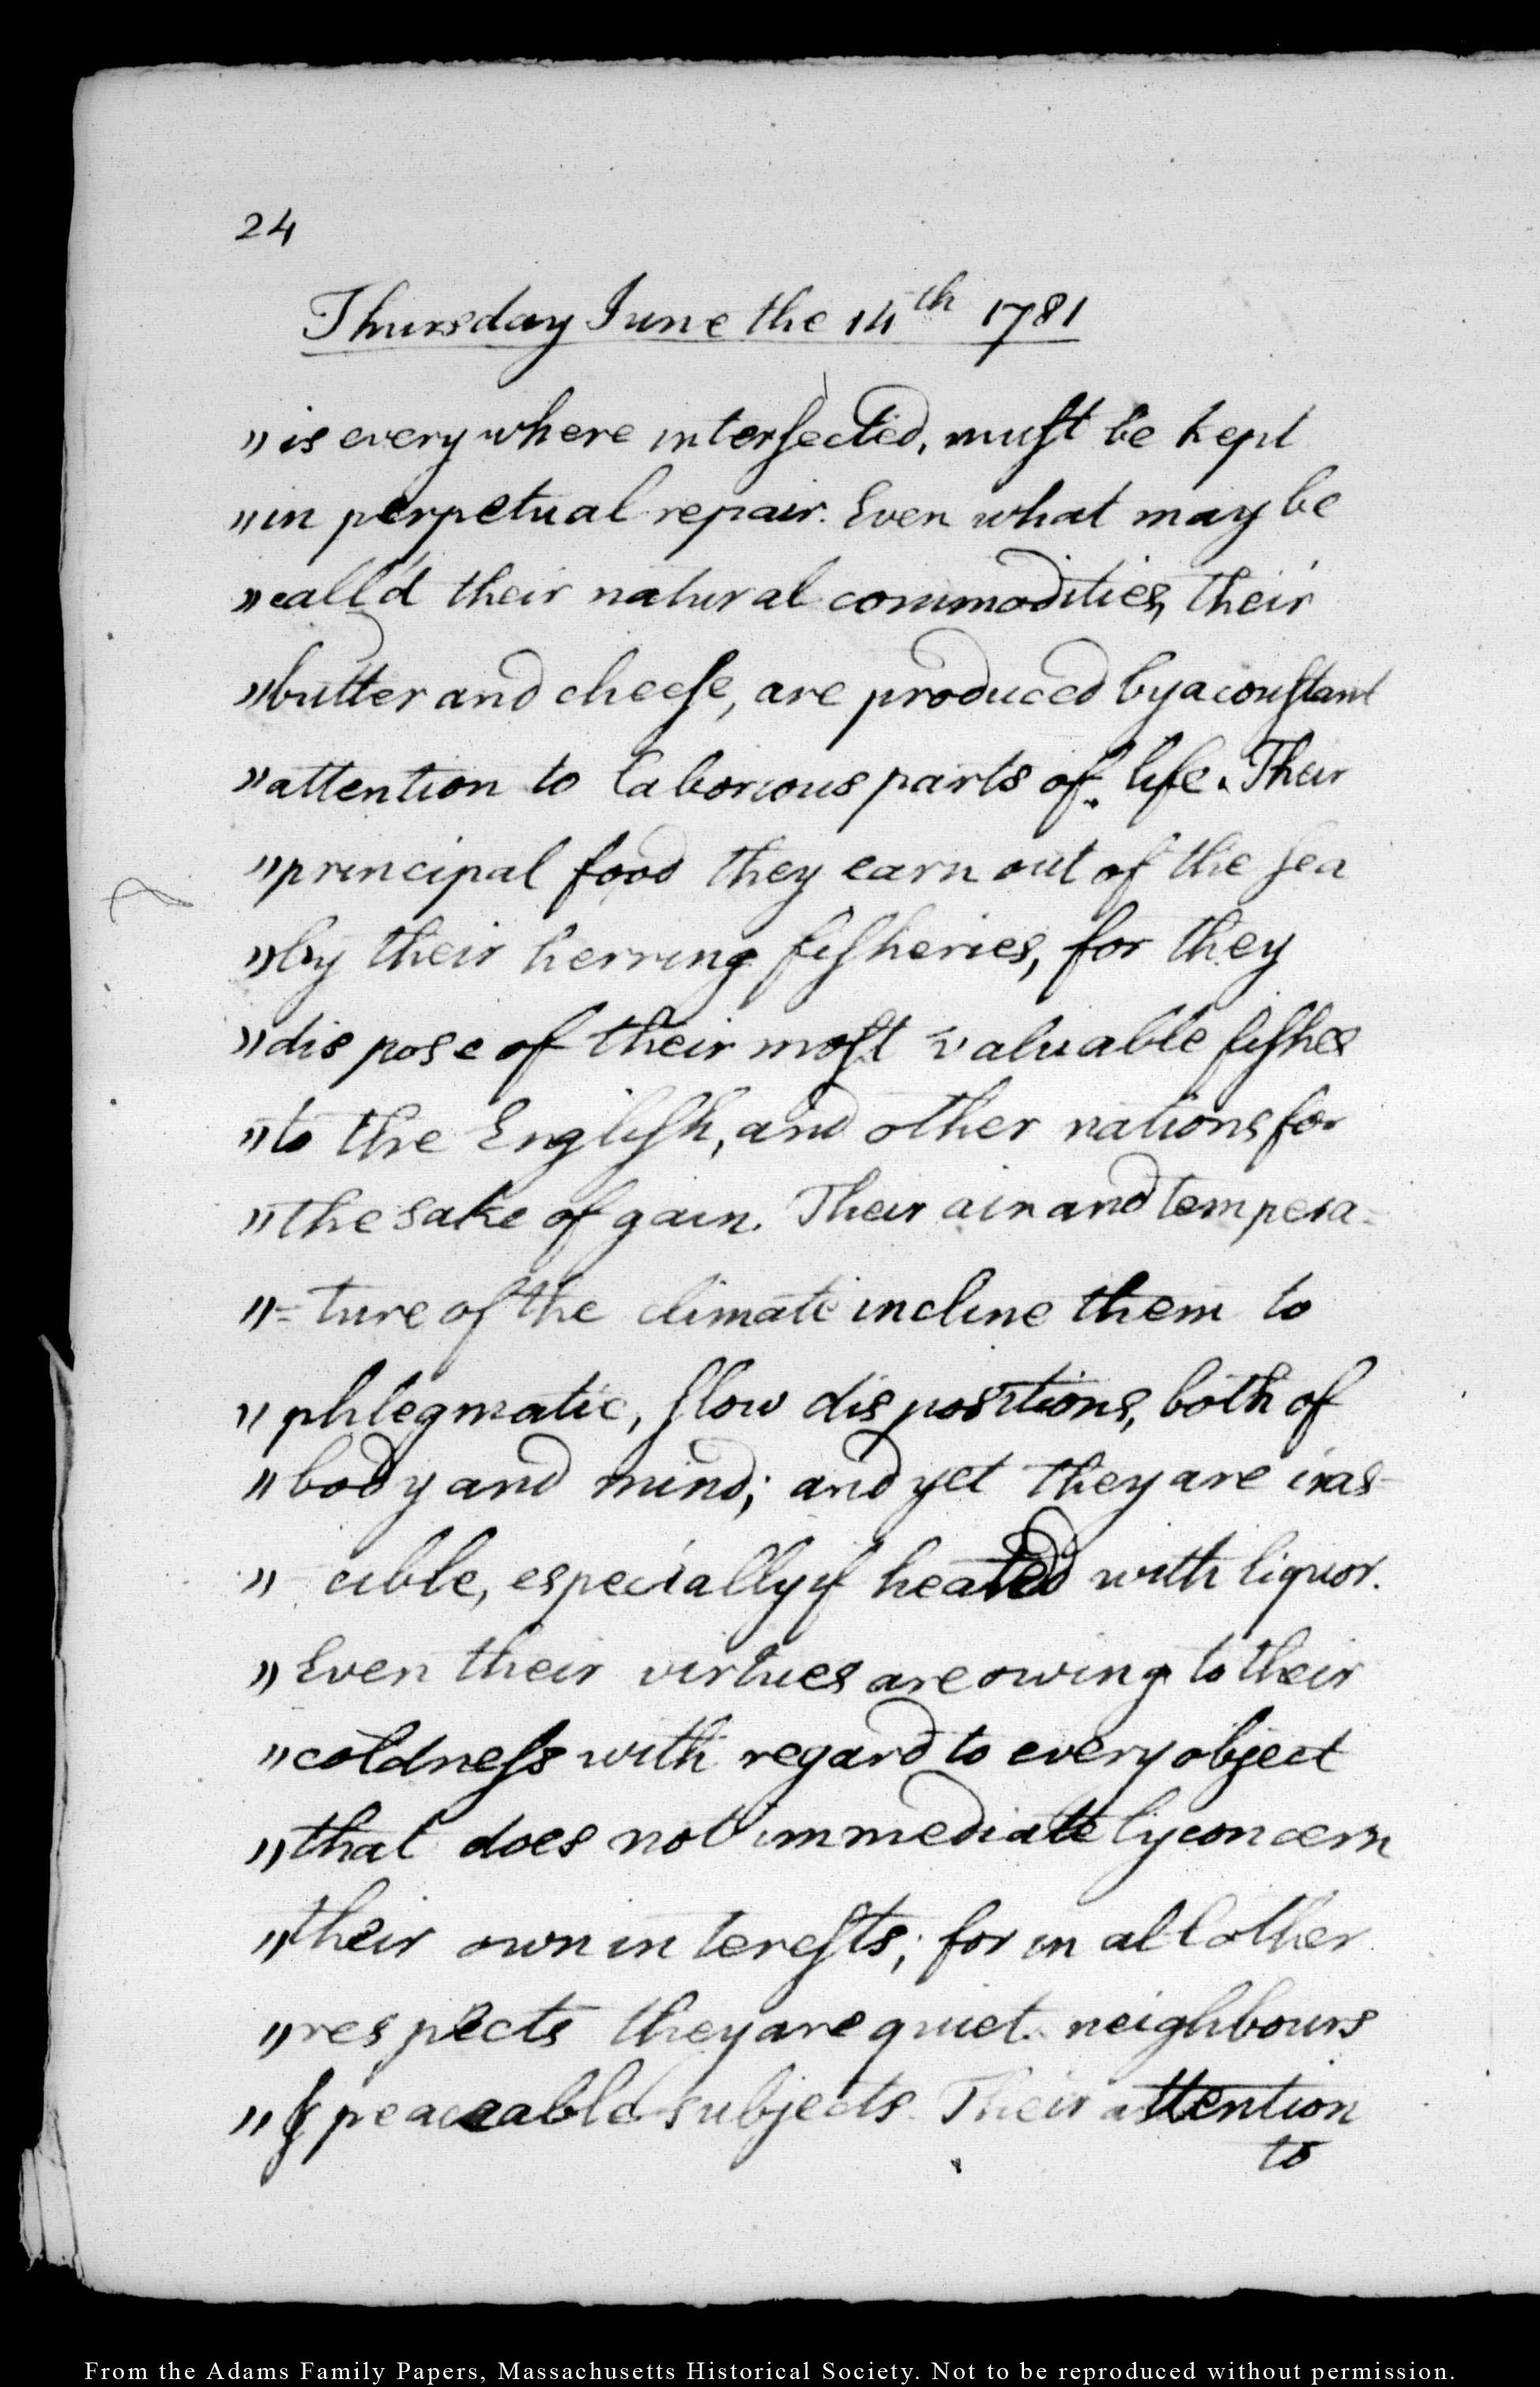 24
Thursday June the 14th 1781
„ is every where interſected, muſt be kept
„ in perpetual repair. Even what may be
„ call'd their natural commodities, their
„ butter and cheeſe, are produced by a conſtant
„ attention to laborious parts of life. Their
„ principal food they earn out of the ſea
„ by their herring fiſheries, for they
„ dispose of their moſt valuable fiſhes
„ to the Engliſh, and other nations for
„ the sake of gain. Their air and tempera=
„ =ture of the climate incline them to
„ phlegmatic, ſlow dispositions, both of
„ body and mind; and yet they are iras-
„ cible, especially if heated with liquor.
„ Even their virtues are owing to their
„ coldneſs with regard to every object
„ that does not immediately concern
„ their own intereſts; for in all other
„ respects they are quiet neighbours
„ & peaceable subjects. Their attention
to
From the Adams Family Papers, Massachusetts Historical Society. Not to be reproduced without permission.